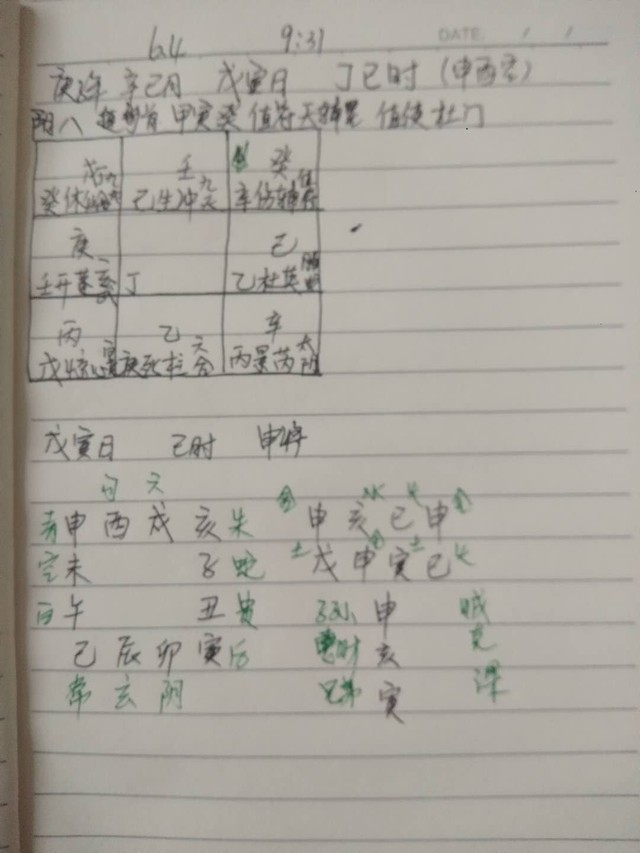 6.4 9:31 DATE / /
庚子年 辛巳月 戊寅日 丁巳时（申酉空）
阴八 甲寅癸 值符天辅星 值使杜门
戊 壬 癸
癸休 己生冲九天 辛伤辅值符
庚 己
壬开蓬 丁 乙杜英
丙 乙 辛
戊惊心 庚死柱六合 丙景芮太阴
戊寅日 巳时 申将
勾 六
青申酉戌亥朱 申亥巳申
空未 子蛇 戊申寅巳
白午 丑贵 申 贼
巳辰卯寅后 亥 克
常玄阴 兄弟 寅 课